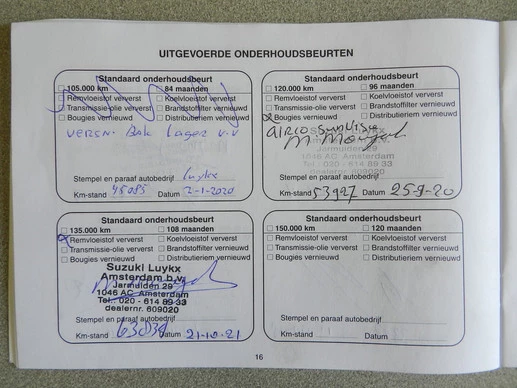 UITGEVOERDE ONDERHOUDSBEURTEN
Standaard onderhoudsbeurt
105.000 km 84 maanden
Remvloeistof ververst Koelvloeistof ververst
Transmissie-olie ververst Brandstoffilter vernieuwd
Bougies vernieuwd Distributieriem vernieuwd
VERSN. Bak Lager v.v
Stempel en paraaf autobedrijf Luykx
Km-stand 45085 Datum 2-1-2020
Standaard onderhoudsbeurt
120.000 km 96 maanden
Remvloeistof ververst Koelvloeistof ververst
Transmissie-olie ververst Brandstoffilter vernieuwd
Bougies vernieuwd Distributieriem vernieuwd
AIRCO
Jarmuiden 29
1046 AC Amsterdam
Tel. 020 - 614 89 33
dealernr. 609020
Stempel en paraaf autobedrijf
Km-stand 53927 Datum 25-9-20
Standaard onderhoudsbeurt
135.000 km 108 maanden
Remvloeistof ververst Koelvloeistof ververst
Transmissie-olie ververst Brandstoffilter vernieuwd
Bougies vernieuwd Distributieriem vernieuwd
Suzuki Luykx
Amsterdam b.v.
Jarmuiden 29
1046 AC Amsterdam
Tel. 020 - 614 89 33
dealernr. 609020
Stempel en paraaf autobedrijf
Km-stand Datum 21-10-21
Standaard onderhoudsbeurt
150.000 km 120 maanden
Remvloeistof ververst Koelvloeistof ververst
Transmissie-olie ververst Brandstoffilter vernieuwd
Bougies vernieuwd Distributieriem vernieuwd
Stempel en paraaf autobedrijf
Km-stand Datum
16